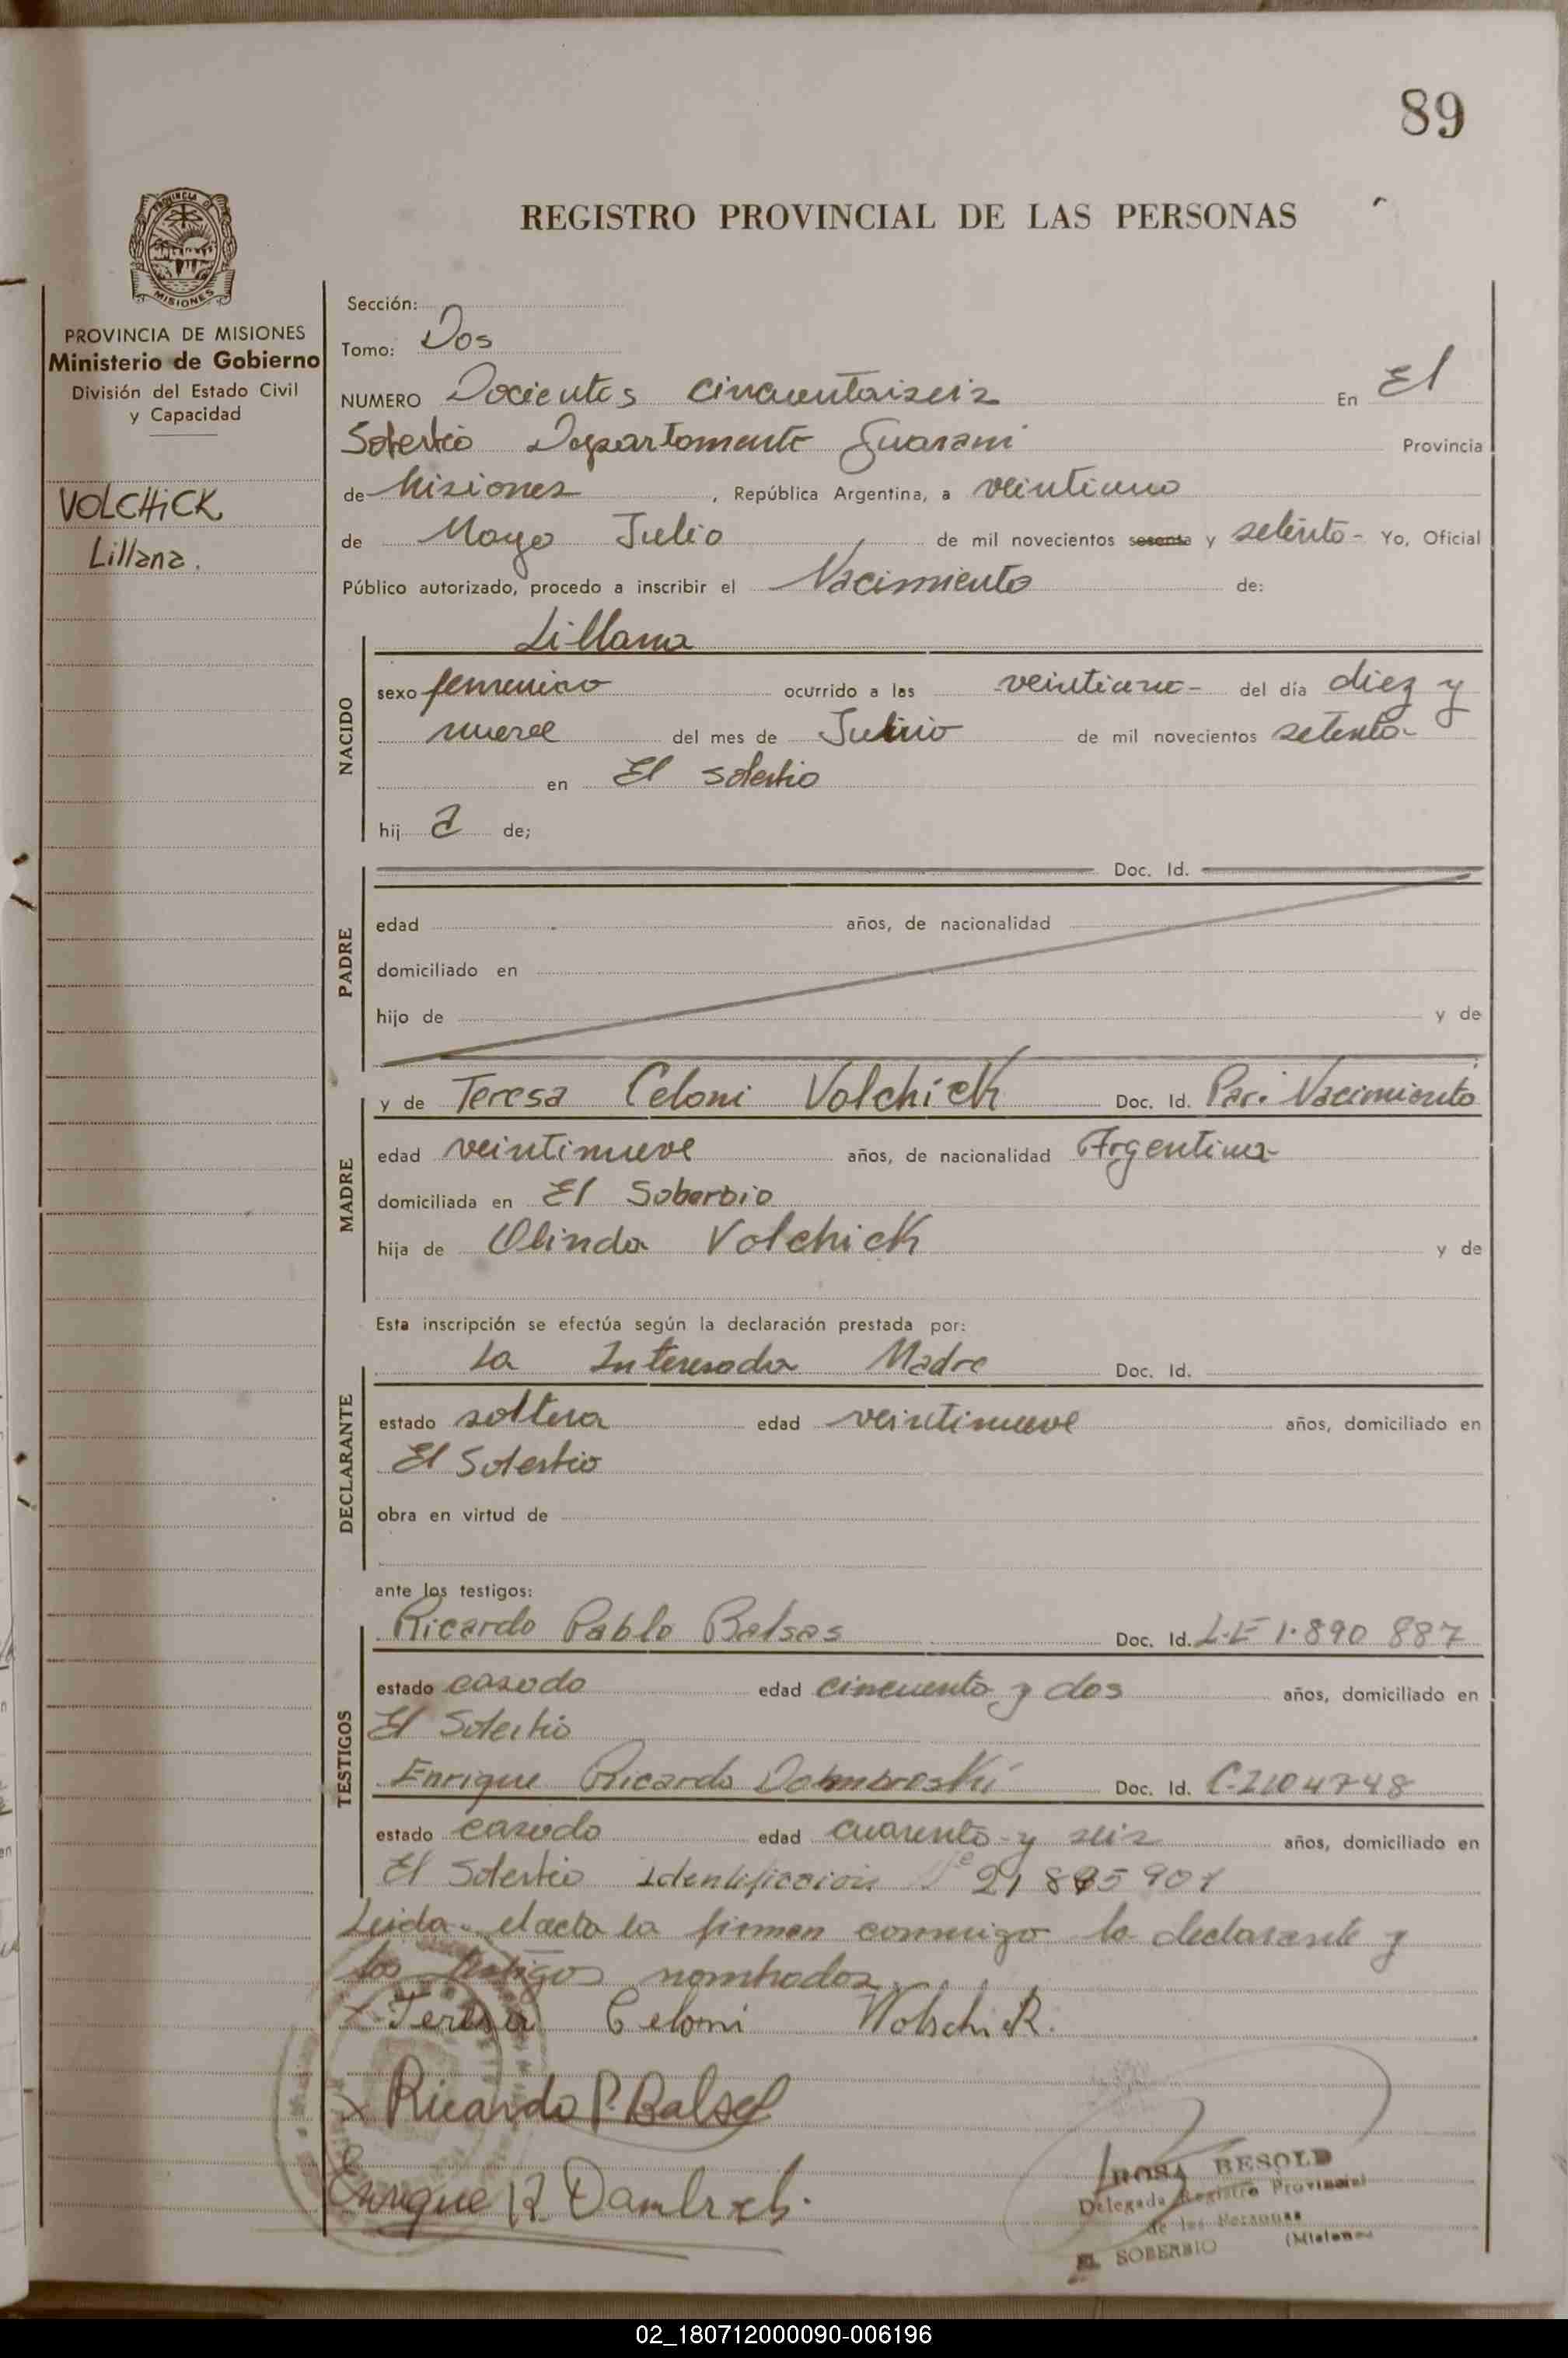 89
PROVINCIA DE
MISIONES
REGISTRO PROVINCIAL DE LAS PERSONAS
PROVINCIA DE MISIONES
Ministerio de Gobierno
División del Estado Civil
y Capacidad
VOLCHiCK
Lillana.
Sección:
Tomo: Dos
NUMERO Docientos cincuentaiseis En El
Soberbio Departamento Guarani Provincia
de Misiones, República Argentina, a veintiuno
de Mayo Julio de mil novecientos sesenta y setenta - Yo, Oficial
Público autorizado, procedo a inscribir el Nacimiento de:
NACIDO
Lillana
sexo femenino ocurrido a las veintiuno - del día diez y
nueve del mes de Junio de mil novecientos setenta-
en El Soberbio
hij a de;
PADRE
Doc. Id.
edad años, de nacionalidad
domiciliado en
hijo de y de
MADRE
y de Teresa Celoni Volchick Doc. Id. Par. Nacimiento
edad veintinueve años, de nacionalidad Argentina
domiciliada en El Soberbio
hija de Olinda Volchick y de
Esta inscripción se efectúa según la declaración prestada por:
DECLARANTE
La Interesada Madre Doc. Id.
estado soltera edad veintinueve años, domiciliado en
El Soberbio
obra en virtud de
ante los testigos:
TESTIGOS
Ricardo Pablo Balsas Doc. Id. L.E 1.890 887
estado casado edad cincuenta y dos años, domiciliado en
El Soberbio
Enrique Ricardo Dombroski Doc. Id. C-2104748
estado casado edad cuarenta y seis años, domiciliado en
El Soberbio Identificacion Nº 21 895 901
Leida el acta la firman conmigo la declarante y
los testigos nombrados
x Teresa Celoni Wolschik.
x Ricardo P. Balsa
Enrique R. Dambroski.
ROSA BESOLD
Delegada Registro Provincial
de las Personas
EL SOBERBIO (Misiones
02_180712000090-006196